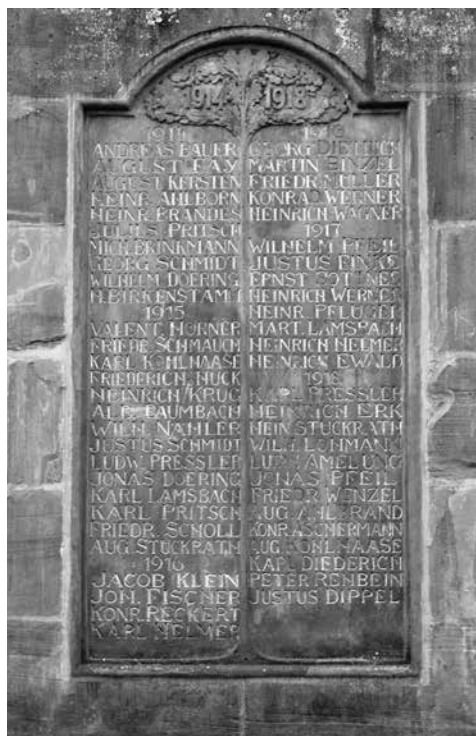 1914 1918
1914
ANDREAS BAUER
AUGUST FAY
AUGUST KERSTEN
HEINR. AHLBORN
HEINR. BRANDES
JULIUS PRITSCH
MICH. BRINKMANN
GEORG SCHMIDT
WILHELM DOERING
H. BIRKENSTAMM
1915
VALENT. HORNER
FRIEDR. SCHMAUCH
KARL KOHLHAASE
FRIEDERICH. HUCK
HEINRICH KRUG
ALB. BAUMBACH
WILH. NÄHLER
JUSTUS SCHMIDT
LUDW. PRESSLER
JONAS DOERING
KARL LAMSBACH
KARL PRITSCH
FRIEDR. SCHOLL
AUG. STÜCKRATH
1916
JACOB KLEIN
JOH. FISCHER
KONR. RECKERT
KARL HELMER
1916
GEORG DIETRICH
MARTIN EINZEL
FRIEDR. MÜLLER
KONRAD WERNER
HEINRICH WAGNER
1917
WILHELM PFEIL
JUSTUS
ERNST
HEINR. WERNER
HEINR. PFLÜGER
MART. LAMSBACH
HEINRICH HELMER
HEINRICH EWALD
1918
KARL PRESSLER
HEINRICH ERK
HEIN. STÜCKRATH
WILH. LOHMANN
LUDW. HAMELUNG
JONAS PFEIL
FRIEDR. WENZEL
AUG. AHLBRAND
KONR. ASCHERMANN
AUG. KOHLHAASE
KARL DIEDERICH
PETER REHBEIN
JUSTUS DIPPEL